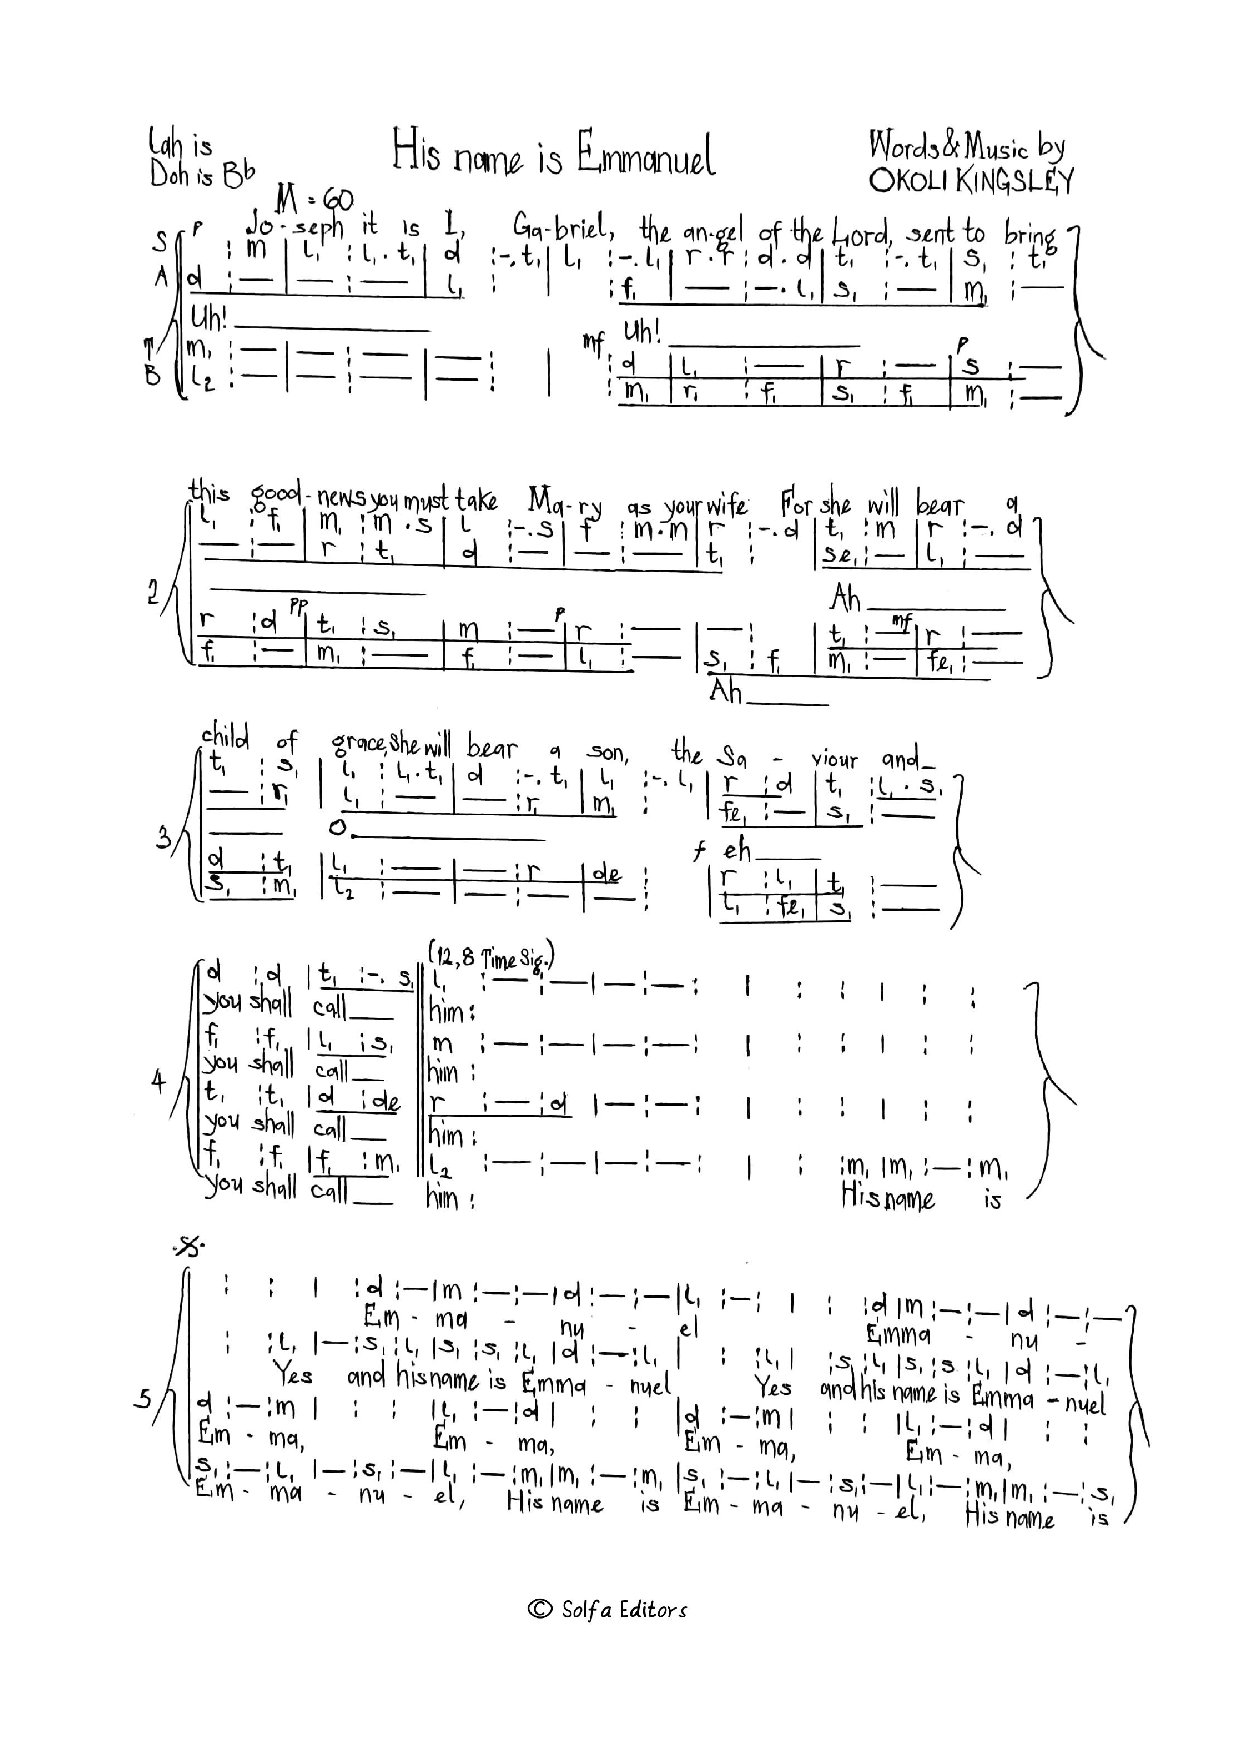 Lah is
Doh is Bb
His name is Emmanuel
Words & Music by
OKOLI KINGSLEY
M = 60
P Jo - seph it is I, Ga-briel, the an-gel of the Lord, sent to bring
S : m | l, : l, . t, | d :-. t, | l, :-. l, | r . r : d . d | t, :-. t, | s, : t,
A d : — | — : — | l, : | : f, | — :-. l, | s, : — | m, : —
Uh! Uh!
mf P
T m, : — | — : — | — : | : d | l, : — | r : — | s : —
B l₂ : — | — : — | — : | : m, | r, : f, | s, : f, | m, : —
this good - news you must take Ma - ry as your wife For she will bear a
l, : f, | m, : m . s | l :-. s | f : m . m | r :-. d | t, : m | r :-. d
— : — | r : t, | d : — | — : — | t, : | se, : — | l, : —
2
Ah
pp P mf
r : d | t, : s, | m : — | r : — | — : | t, : — | r : —
f, : — | m, : — | f, : — | l, : — | s, : f, | m, : — | fe, : —
Ah
child of grace, she will bear a son, the Sa - viour and
t, : s, | l, : l, . t, | d :-. t, | l, :-. l, | r : d | t, : l, . s,
— : r, | l, : — | — : r, | m, : | fe, : — | s, : —
3 O f eh
d : t, | l, : — | — : r | de : | r : l, | t, : —
s, : m, | l₂ : — | — : — | — : | l, : fe, | s, : —
(12,8 Time Sig.)
d : d | t, :-. s, || l, : — : — | — : — : | : : | : :
you shall call him :
f, : f, | l, : s, || m : — : — | — : — : | : : | : :
you shall call him :
4
t, : t, | d : de || r : — : d | — : — : | : : | : :
you shall call him :
f, : f, | f, : m, || l₂ : — : — | — : — : | : : m, | m, : — : m,
you shall call him : His name is
: : | : d : — | m : — : — | d : — : — | l, : — : | : : d | m : — : — | d : — : —
Em - ma - nu - el Emma - nu -
: : l, | — : s, : l, | s, : s, : l, | d : — : l, | : : l, | : s, : l, | s, : s : l, | d : — : l,
Yes and his name is Emma - nuel Yes and his name is Emma - nuel
5
d : — : m | : : | l, : — : d | : : | d : — : m | : : | l, : — : d | : :
Em - ma, Em - ma, Em - ma, Em - ma,
s, : — : l, | — : s, : — | l, : — : m, | m, : — : m, | s, : — : l, | — : s, : — | l, : — : m, | m, : — : s,
Em - ma - nu - el, His name is Em - ma - nu - el, His name is
© Solfa Editors